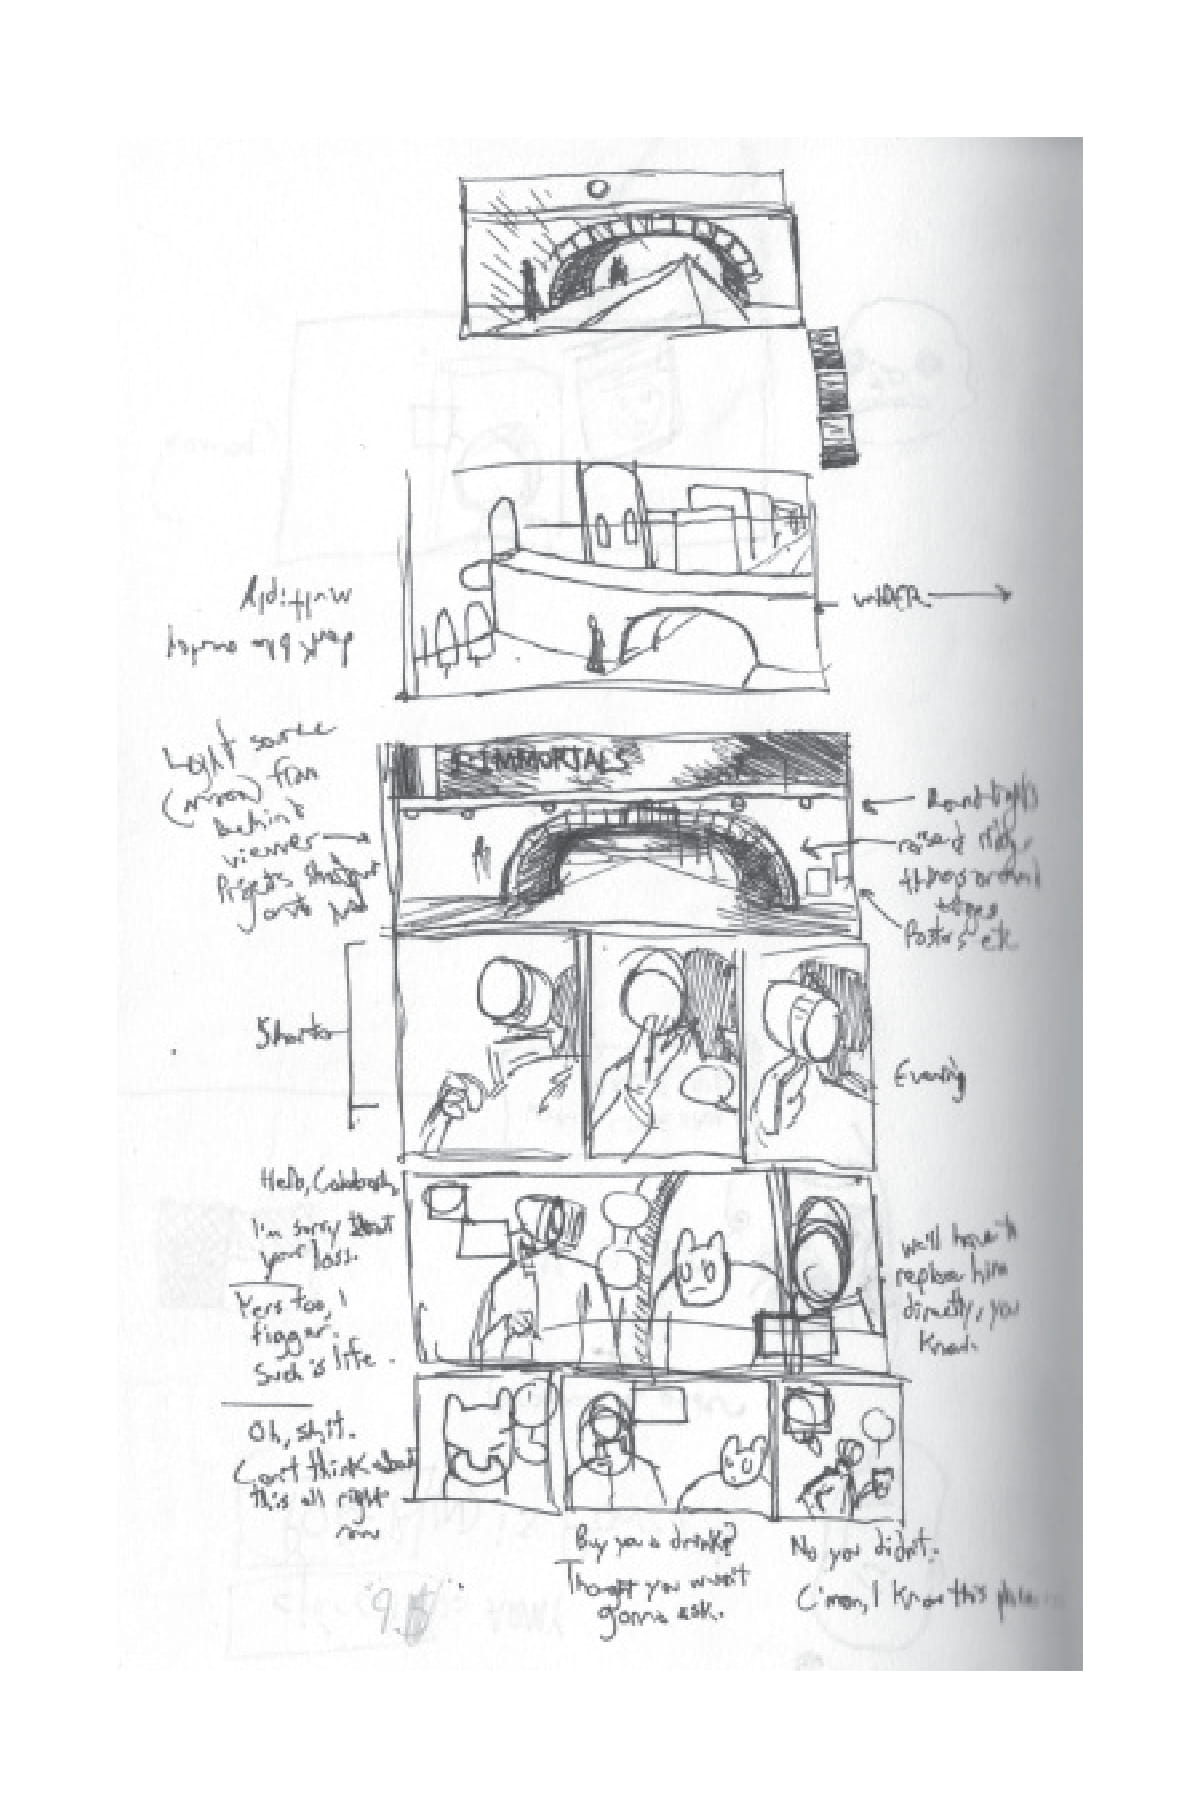 multiply
dark blue overlay
WIDER
Light source
(moon) from
behind
viewer
Projects straight
onto
IMMORTALS
Round lights
raised ridge
things around
edges
Posters etc
Shorter
Evening
Hello, Calabash,
I'm sorry about
your loss.
Yers too, I
figger.
Such is life.
we'll have to
replace him
directly, you
know.
Oh, shit.
Can't think about
this all right
now
Buy you a drink?
Thought you wasn't
gonna ask.
No you didn't.
C'mon, I know this